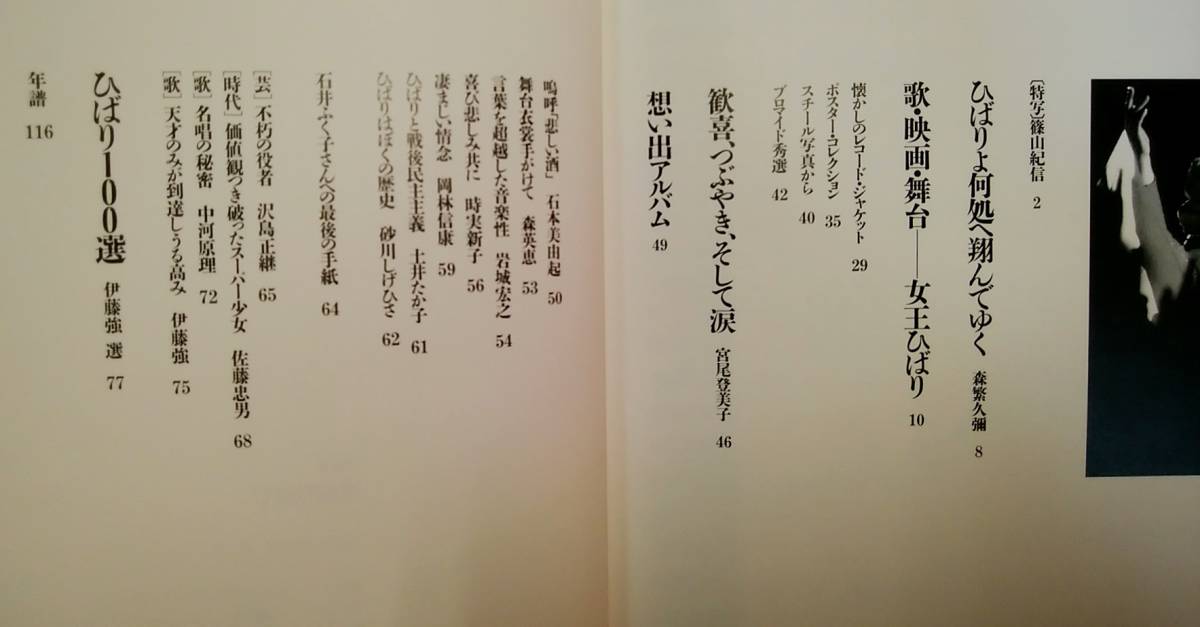 〔特写〕篠山紀信 2
ひばりよ何処へ翔んでゆく 森繁久彌 8
歌・映画・舞台——女王ひばり 10
懐かしのレコード・ジャケット 29
ポスター・コレクション 35
スチール写真から 40
ブロマイド秀選 42
歓喜、つぶやき、そして涙 宮尾登美子 46
想い出アルバム 49
嗚呼「悲しい酒」 石本美由起 50
舞台衣裳手がけて 森英恵 53
言葉を超越した音楽性 岩城宏之 54
喜び悲しみ共に 時実新子 56
凄まじい情念 岡林信康 59
ひばりと戦後民主主義 土井たか子 61
ひばりはぼくの歴史 砂川しげひさ 62
石井ふく子さんへの最後の手紙 64
［芸］不朽の役者 沢島正継 65
［時代］価値観つき破ったスーパー少女 佐藤忠男 68
［歌］名唱の秘密 中河原理 72
［歌］天才のみが到達しうる高み 伊藤強 75
ひばり100選 伊藤強 選 77
年譜 116